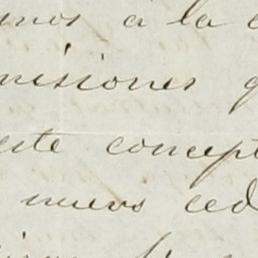 mos a la
misiones
este concept
nuevo ced